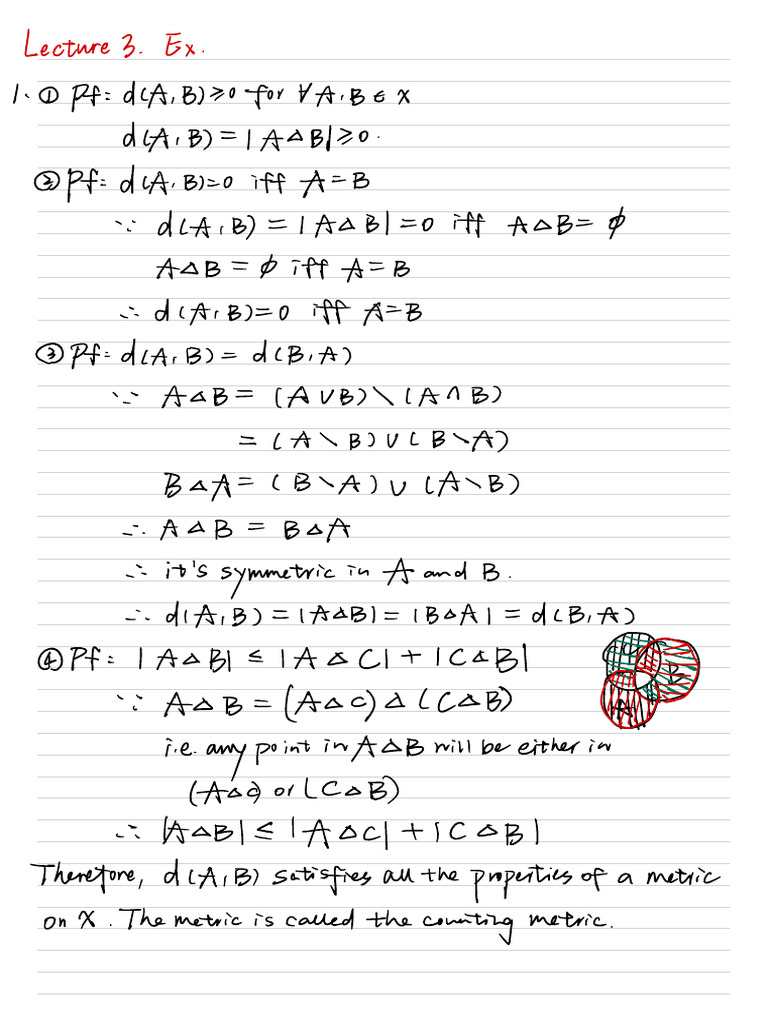 Lecture 3. Ex.
1. ① Pf: d(A,B)≥0 for ∀A,B∈X
d(A,B) = |A△B|≥0.
② Pf: d(A,B)=0 iff A=B
∵ d(A,B) = |A△B| =0 iff A△B= ∅
A△B = ∅ iff A=B
∴ d(A,B)=0 iff A=B
③ Pf: d(A,B) = d(B,A)
∵ A△B = (A∪B)\(A∩B)
= (A\B)∪(B\A)
B△A= (B\A)∪(A\B)
∴ A△B = B△A
∴ it's symmetric in A and B.
∴ d(A,B) = |A△B| = |B△A| = d(B,A)
④ Pf: |A△B| ≤ |A△C| + |C△B|
∵ A△B = (A△C)△(C△B)
i.e. any point in A△B will be either in
(A△C) or (C△B)
∴ |A△B| ≤ |A△C| + |C△B|
C
B
A
Therefore, d(A,B) satisfies all the properties of a metric
on X. The metric is called the counting metric.